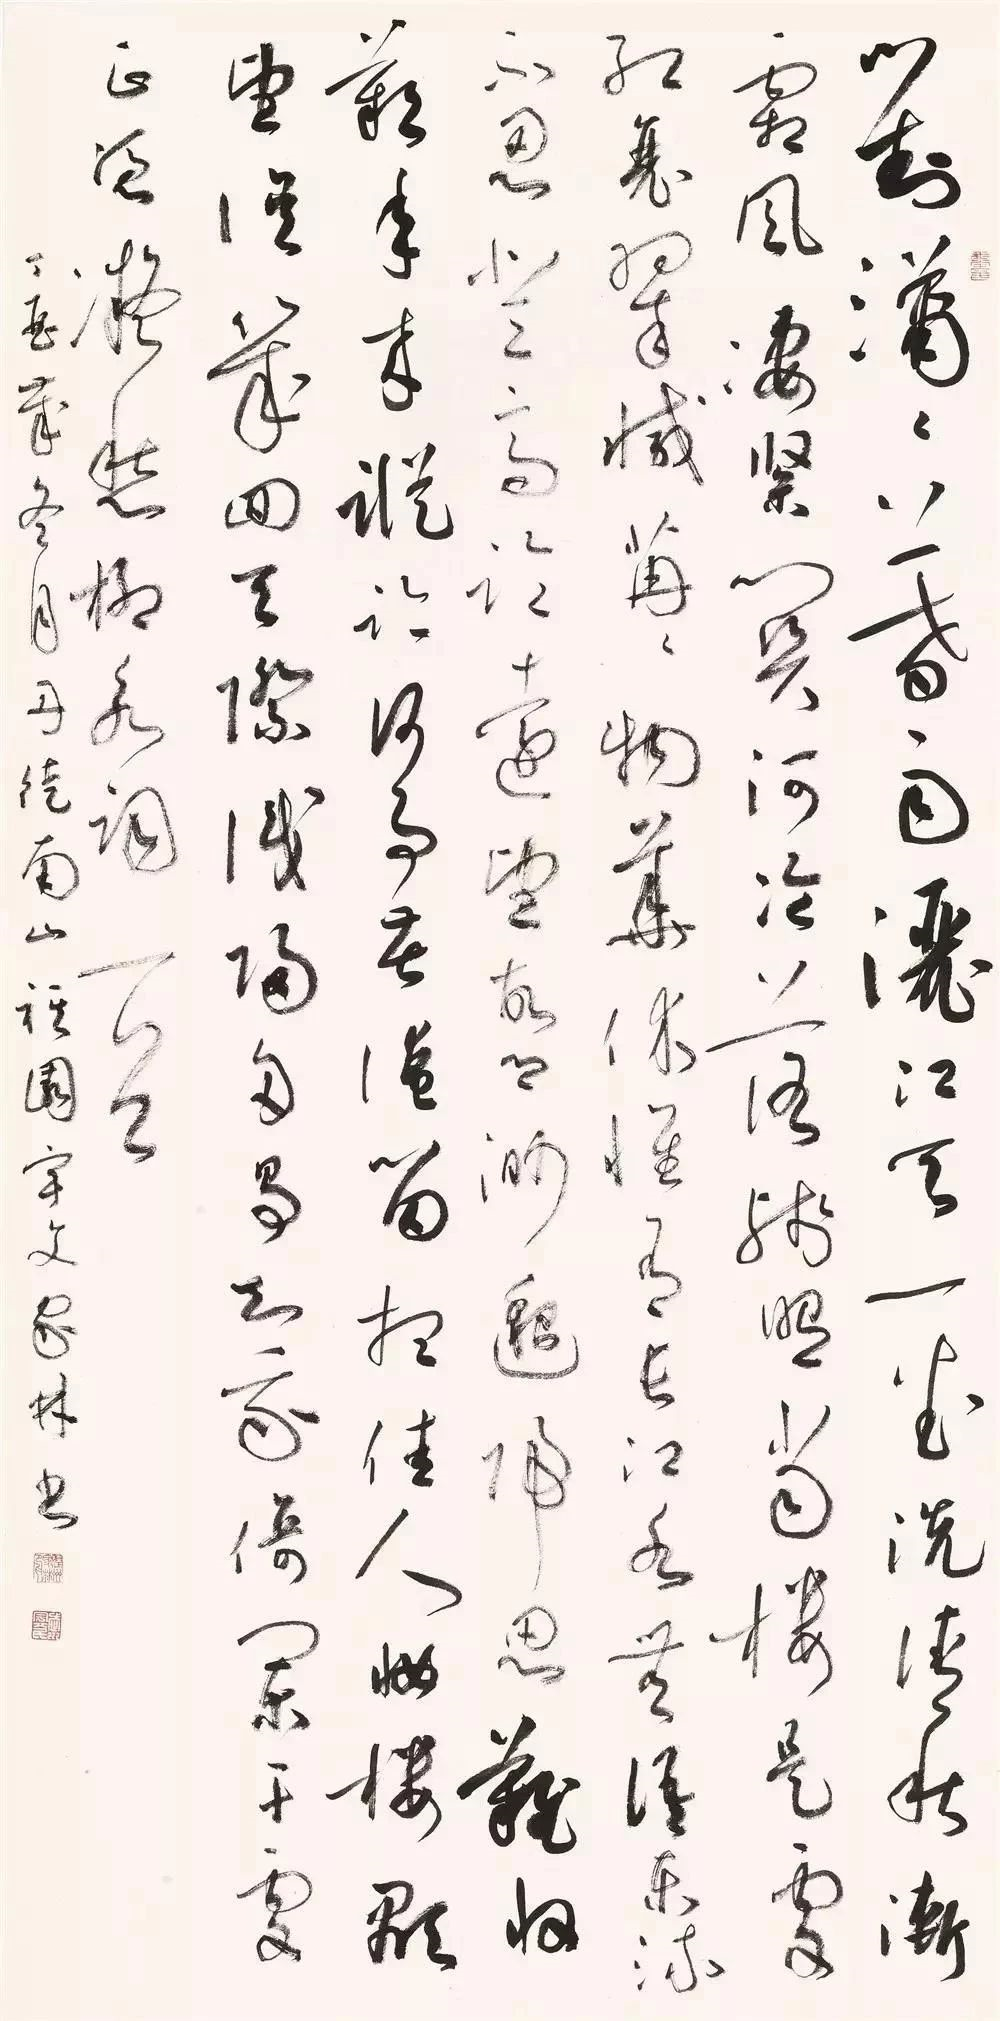 對瀟々暮雨灑江天一番洗清秋漸
霜風淒緊關河冷落殘照當樓是處
紅衰翠減苒々物華休惟有長江水無語東流
不忍登高臨遠望故鄉渺邈歸思難收
歎年來蹤跡何事苦淹留想佳人妝樓顒
望誤幾回天際識歸舟爭知我倚闌干處
正恁凝愁柳永詞一首
丁酉歲冬月丹徒南山園宇文家林书